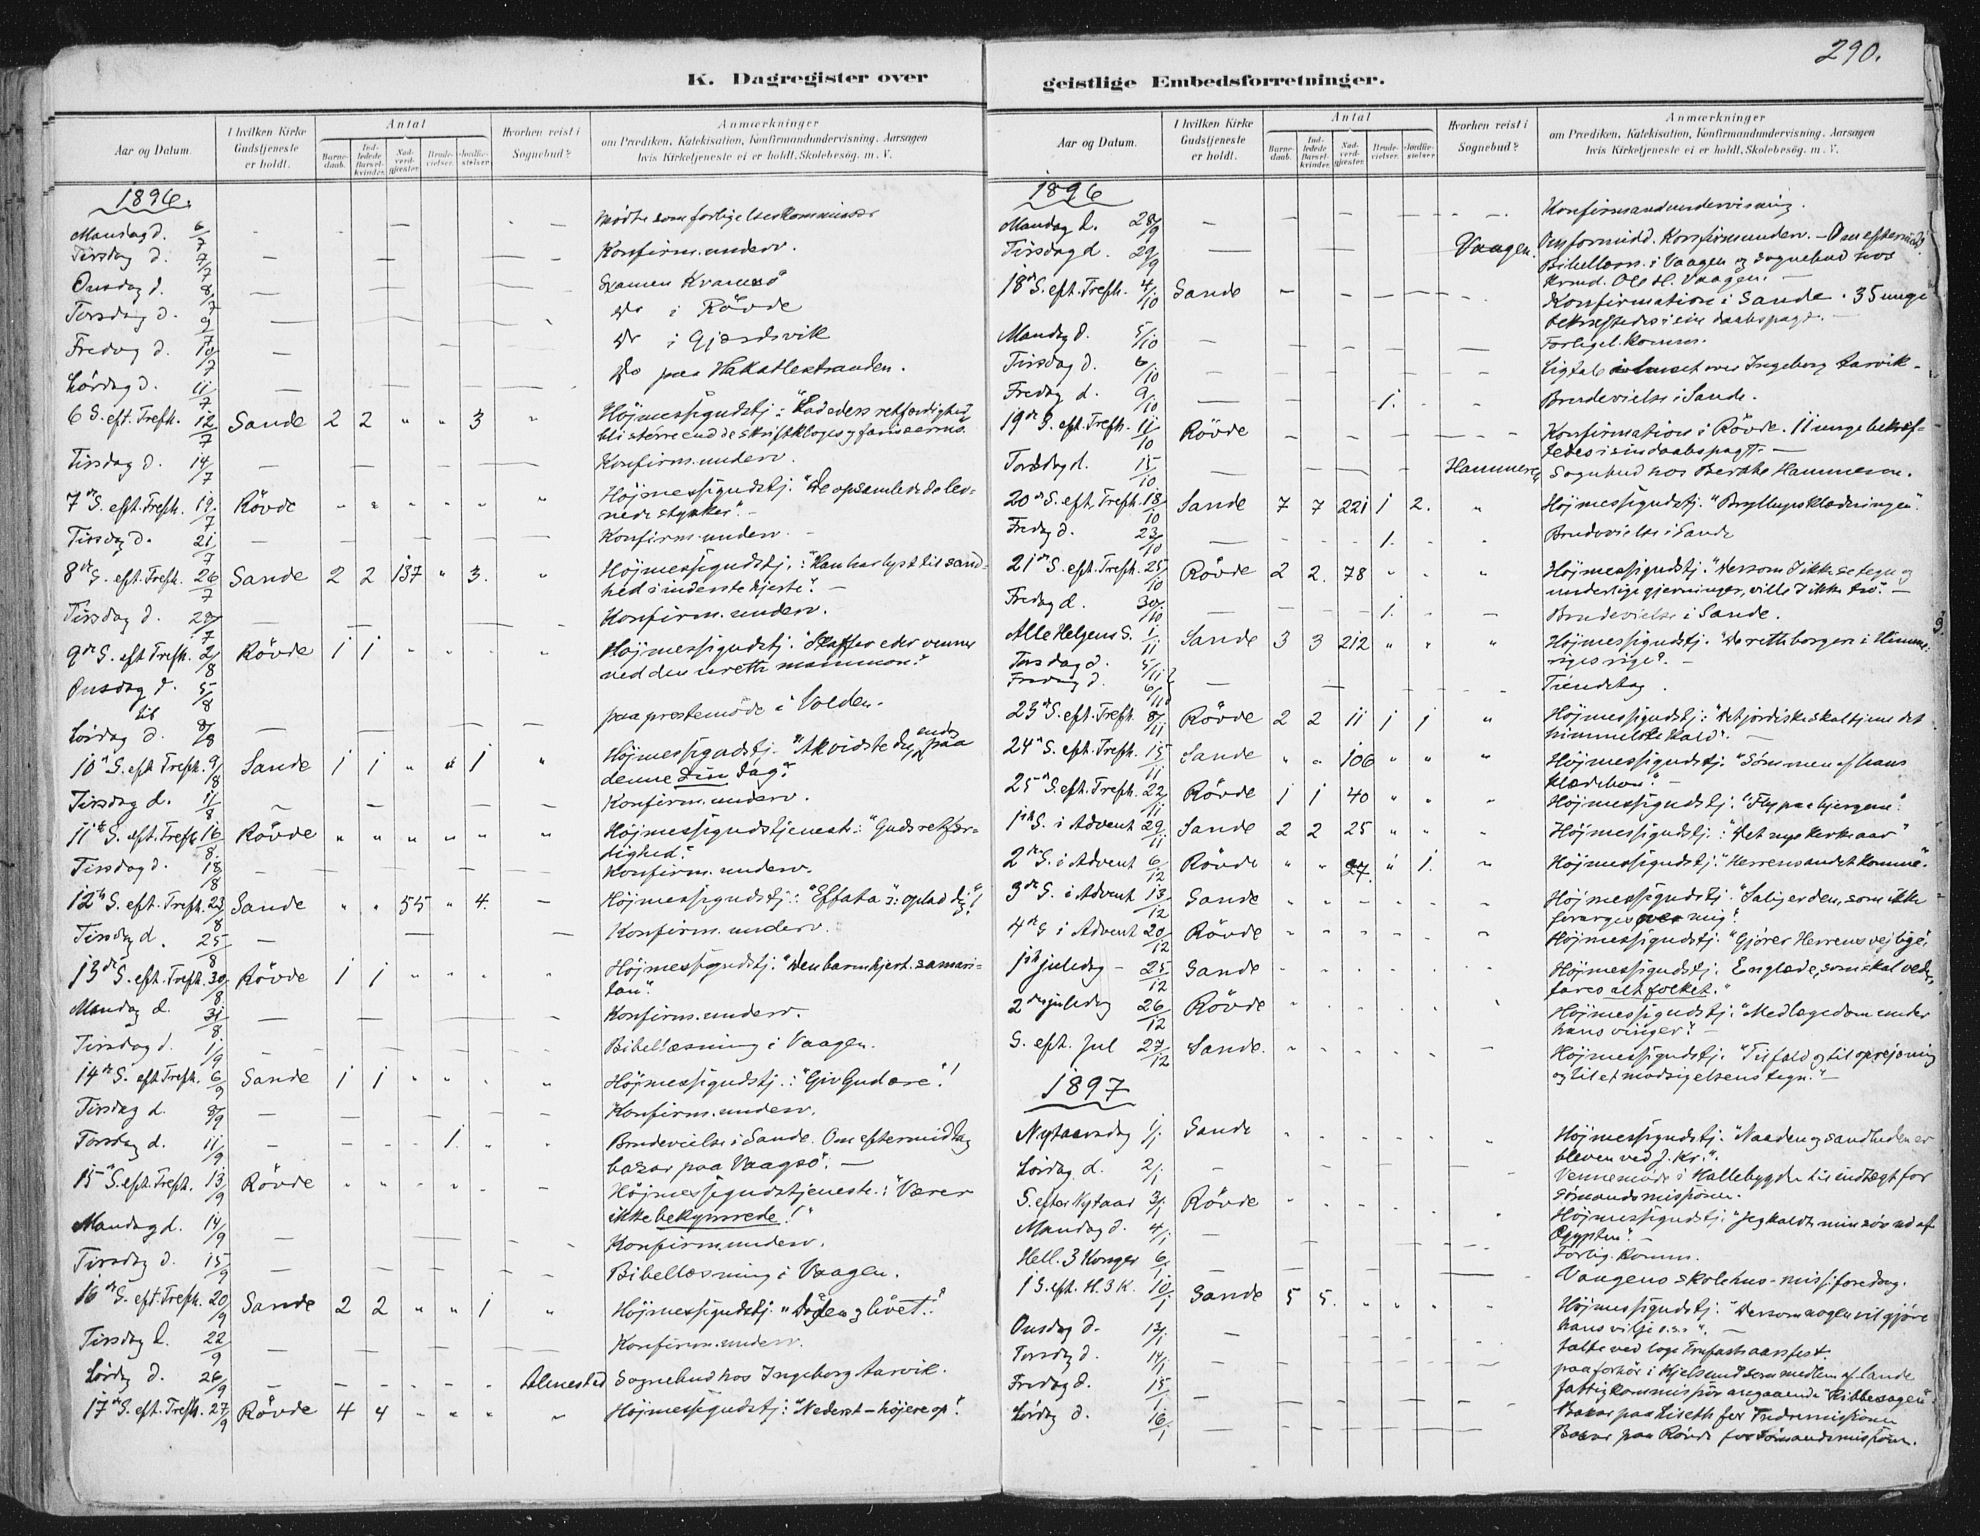 290.
K. Dagregister over
geistlige Embedsforretninger.
Aar og Datum.
I hvilken Kirke Gudstjeneste er holdt.
Antal
Barne-daab.
Ind-ledede Barsel-kvinder.
Nad-verd-gjester.
Brude-vielser.
Jordfæ-stelser.
Hvorhen reist i Sognebud?
Anmærkninger
om Prædiken, Katekisation, Konfirmandundervisning. Aarsagen
hvis Kirketjeneste ei er holdt. Skolebesøg. m. V.
1896.
Mandag d. 6/7 Mødte som forligelseskommissær
Tirsdag d. 7/7 Konfirm. underv.
Onsdag d. 8/7 Examen Kvamsø
Torsdag d. 9/7 Do i Røvde
Fredag d. 10/7 Do i Gjærdsvik
Lørdag d. 11/7 Do paa Hakallestranden.
6 S. eft. Trefh. 12/7 Sande 2 2 " " 3 " Højmessigudstj: "Lad eders retfærdighed
bli større end de skriftkloges og fariseernes.
Tirsdag d. 14/7 Konfirm. underv.
7de S. eft. Trefh. 19/7 Røvde Højmessigudstj. "De opsamlede de lev-
nede stykker". -
Tirsdag d. 21/7 Konfirm. underv. -
8de S. eft. Trefh. 26/7 Sande 2 2 137 " 3. " Højmessigudstj.: "Han har lyst til sand-
hed i inderste hjerte". -
Tirsdag d. 28/7 Konfirm. underv.
9de S. eft Trefh. 2/8 Røvde 1 1 Højmessigudstj. "Skaffer eder venner
ved den urette mammon".
Onsdag d. 5/8
til
Lørdag d. 8/8 paa prestemøde i Volden.
10de S. eft Trefh. 9/8 Sande 1 1 " " 1 " Højmessigudstj. "Ak vidste du, endog paa
denne Din dag".
Tirsdag d. 11/8 Konfirm. underv.
11te S. eft. Trefh. 16/8. Røvde " " " " " Højmessigudstjeneste: "Guds retfær-
dighed".
Tirsdag d. 18/8 Konfirm. underv.
12te S. eft. Trefh. 23/8 Sande " " 55 " 4. - Højmessigudstj.: "Effata": oplad dig!
Tirsdag d. 25/8 Konfirm. underv.
13de S. eft. Trefh. 30/8. Røvde 1 1 Højmessigudstj. "Den barmhjert. samari-
tan".
Mandag d. 31/8. Konfirm. underv.
Tirsdag d. 1/9 Bibellæsning i Vaagen.
14de S. eft Trefh. 6/9 Sande 1 1 Højmessigudstj.: "Giv Gud ære"!
Tirsdag d. 8/9 Konfirm. underv.
Torsdag d. 11/9 1. Brudevielse i Sande. Om eftermiddag
bazar paa Vaagsø. -
15de S. eft. Trefh. 13/9 Røvde Højmessigudstjeneste: "Værer
ikke bekymrede!"
Mandag d. 14/9 Konfirm. underv.
Tirsdag d. 15/9 Bibellæsning i Vaagen.
16de S. eft. Trefh. 20/9 Sande 2 2 " " 1 " Højmessigudstj. "Døden og livet".
Tirsdag d. 22/9 Konfirm. underv.
Lørdag d. 26/9 Almestad Sognebud hos Ingeborg Aarvik.
17de S. eft. Trefh. 27/9 Røvde 4 4 Højmessigudstj: "Nederst - højere op".
Aar og Datum.
I hvilken Kirke Gudstjeneste er holdt.
Antal
Barne-daab.
Ind-ledede Barsel-kvinder.
Nad-verd-gjester.
Brude-vielser.
Jordfæ-stelser.
Hvorhen reist i Sognebud?
Anmærkninger
om Prædiken, Katekisation, Konfirmandundervisning. Aarsagen
hvis Kirketjeneste ei er holdt. Skolebesøg. m. V.
1896
Mandag d. 28/9 Konfirmandundervisning.
Tirsdag d. 29/9 Vaagen. Om formidd. Konfirm. underv. - Om eftermidd.
Bibellæsn. i Vaagen og sognebud hos
Krmd. Ole H. Vaagen.
18de S. eft. Trefh. 4/10 Sande Konfirmation i Sande. 35 unge
bekræftedes i sin daabspagt. -
Mandag d. 5/10 Forligel. komm.
Tirsdag d. 6/10 Ligtale i huset over Ingeborg Aarvik.
Fredag d. 9/10 1. Brudevielse i Sande.
19de S. eft. Trefh. 11/10 Røvde Konfirmation i Røvde. 11 unge bekræf-
tedes i sin daabspagt. -
Torsdag d. 15/10 Hammeren Sognebud hos Berthe Hammeren.
20de S. eft. Trefh. 18/10 Sande 7 7 221 1 2. " Højmessigudstj. "Bryllupsklædningen".
Fredag d. 23/10 1. Brudevielse i Sande
21de S. eft. Trefh. 25/10 Røvde 2 2. 78 Højmessigudstj. "Dersom I ikke se tegn og
underlige gjerninger, ville I ikke tro". -
Fredag d. 30/10 1. Brudevielse i Sande.
Alle Helgens S. 1/11 Sande 3 3 212 " " " Højmessigudstj. "De rette borgere i Himme-
riges rige". -
Torsdag d. 5/11
Fredag d. 6/11 Tiendetag.
23de S. eft. Trefh. 8/11 Røvde 2 2 11 1 1 " Højmessigudstj: "Det jordiske skal tjene det
himmelske kald". -
24de S. eft. Trefh. 15/11 Sande " " 106 " " " Højmessigudstj. "Sømmen af hans
klædebon". -
25de S. eft. Trefh. 22/11 Røvde 1 1 40 Højmessigudstj. "Fly paa bjergene".
1ste S. i Advent 29/11 Sande 2 2 25 Højmessigudstj.: "Det nye kirkeaar"
2den S. i Advent 6/12 Røvde " " 27. " 1. " Højmessigudstj. "Herrens andet komme".
3de S. i Advent 13/12 Sande Højmessigudstj. "Salig er den, som ikke
forarges over mig".
4de S. i Advent 20/12 Røvde Højmessigudstj. "Gjører Herrens vej lige".
1ste juledag - 25/12 Sande Højmessigudstj. En glæde, som skal veder-
fares alt folket."
2den juledag 26/12 Røvde Højmessigudstj: "Med lægedom under
hans vinger". -
S. eft. Jul 27/12 Sande. Højmessigudstj. "Til fald og til oprejsning
og til et modsigelsens tegn". -
1897
Nytaarsdag 1/1 Sande Højmessigudstj. "Naaden og sandheden er
bleven ved J. Kr.".
Lørdag d. 2/1 Vennemøde i Hallebygden til indtægt for
sømandsmissionen.
S. efter Nytaar 3/1 Røvde Højmessigudstj. "Jeg kaldte min søn ud af
Ægypten".
Mandag d. 4/1 Forlig. komm.
Hell. 3 Konger 6/1 Vaagens skolehus - miss. foredrag.
1 S. eft. H. 3 K. 10/1 Sande 5 5. Højmessigudstj: "Dersom nogen vil gjøre
hans vilje o.s.v." -
Onsdag d. 13/1 talte ved loge Trefasts aarsfest.
Torsdag d. 14/1 paa forhør i Kjelsund som medlem af Sande
fattigkommission angaaende "Ribbesagen".
Fredag d. 15/1 Bazar paa Liseth for Indremissionen
Lørdag d. 16/1 Bazar paa Røvde for Sømandsmissionen.